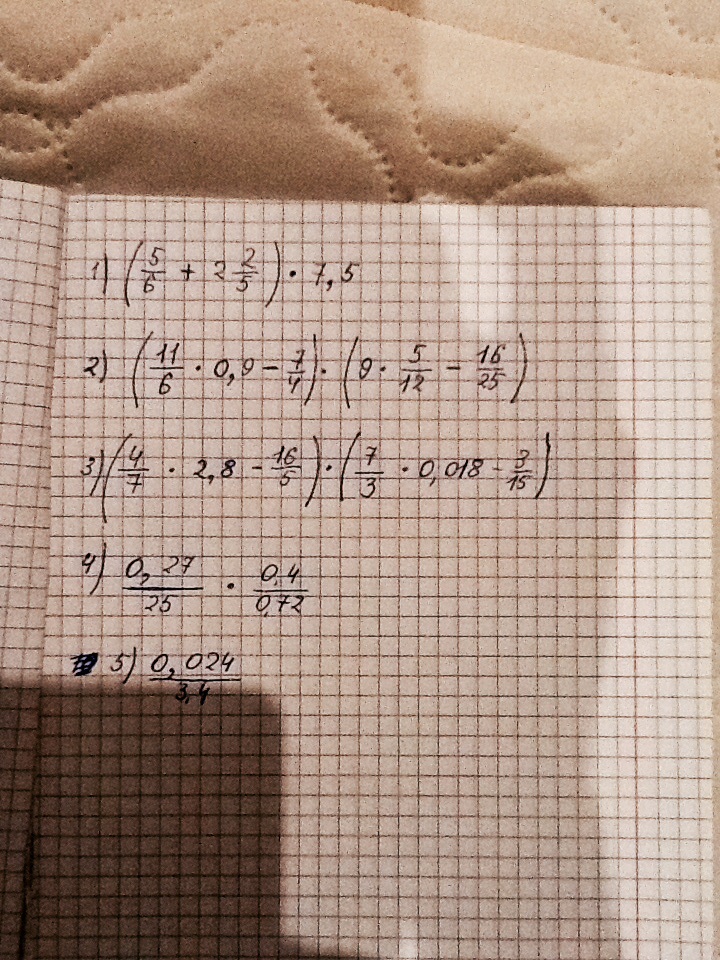 1) (5/6 + 2 2/5) · 7,5
2) (11/6 · 0,9 − 7/4) · (9 · 5/12 − 16/25)
3) (4/7 · 2,8 − 16/5) · (7/3 · 0,018 − 3/15)
4) 0,27/25 · 0,4/0,72
5) 0,024/3,4